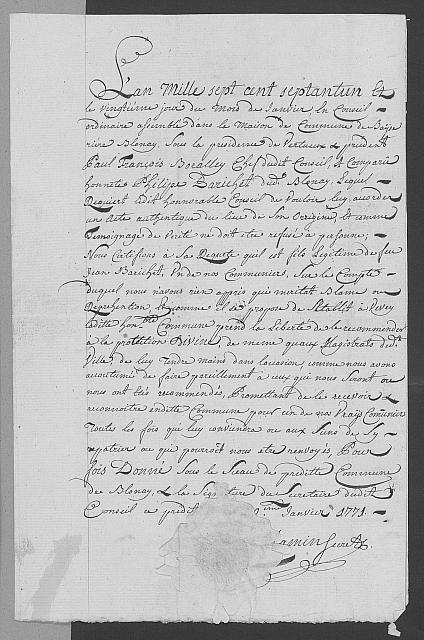 L'an Mille sept cent septantun Et
le vingtiéme jour du Mois de Janvier, En Conseil
ordinaire assemblé dans la Maison de Commune de
rive Blonay, Sous la presidence de Vertueux & prudent
Paul François Chef dudit Conseil, A Comparu
honnete Philipe Barichet dud. Blonay, Lequel
Requiert Ledit honnorable Conseil de Vouloir luy accorder
un Acte authentique du lieu de Son Origine, et comme
temoignage de Verité ne doit être refusé a personne;
Nous Certifions à Sa Requete qu'il est fils Legitime de feu
Jean Barichet, Un de nos Communiers, Sur le Compte
duquel nous navons rien appris qui meritat Blame ou
Reprehention, Et comme il se propose de S'établir à Vevey
Ladite hon.ble Commune prend la Liberté de le recommender
à la protection Divine, de meme qu'aux Magistrats dud.
Ville de luy tendre mains dans loccasion, comme nous avons
accoutumés de faire pareillement à ceux qui nous Sont ou
nous ont étés recommendés, Promettant de le recevoir &
reconnoitre endite Commune pour l'un de nos Vrays Comunier
Toutes les fois que luy conviendra ou aux Siens de Sy
rapatrier ou que pourroit nous etre renvoyés, Pour
foi Donné Sous le Sceau de predite Commune
de Blonay, & la Sig ture du Secretaire dudit
Conseil ce predit Janvier 1771.
Secret.